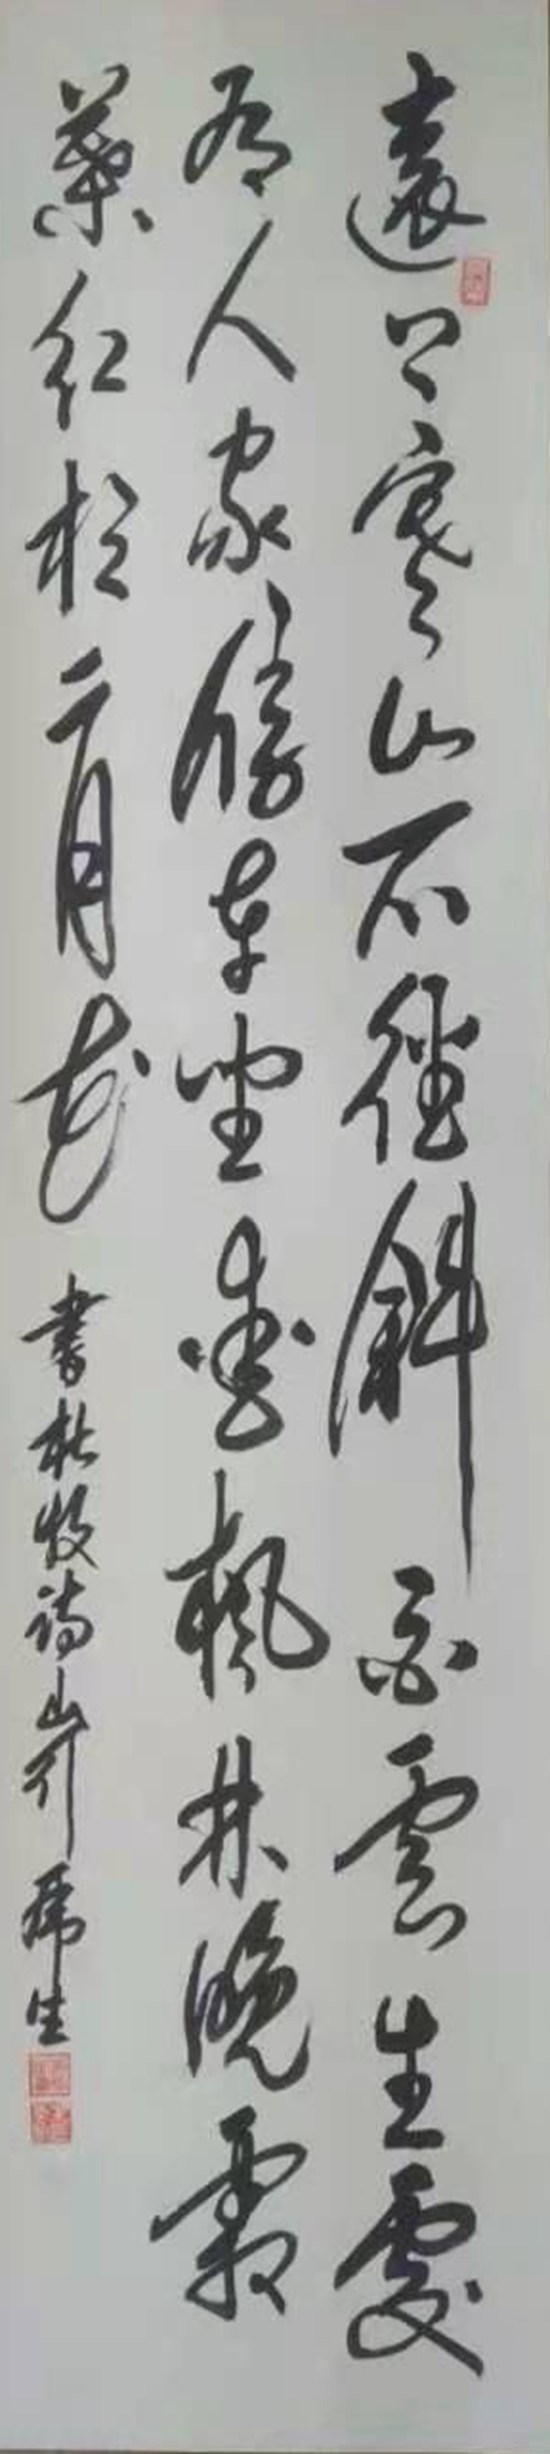 遠上寒山石徑斜白雲生處
有人家停車坐愛楓林晚霜
葉紅於二月花 書杜牧詩山行 生